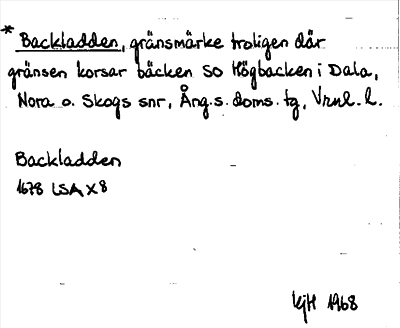 * Backladden, gränsmärke troligen där
gränsen korsar bäcken SO Högbacken i Dala,
Nora o. Skogs snr, Ång. s. doms. tg, Vrnl. l.
Backladden
1678 LSA X8
KjH 1968